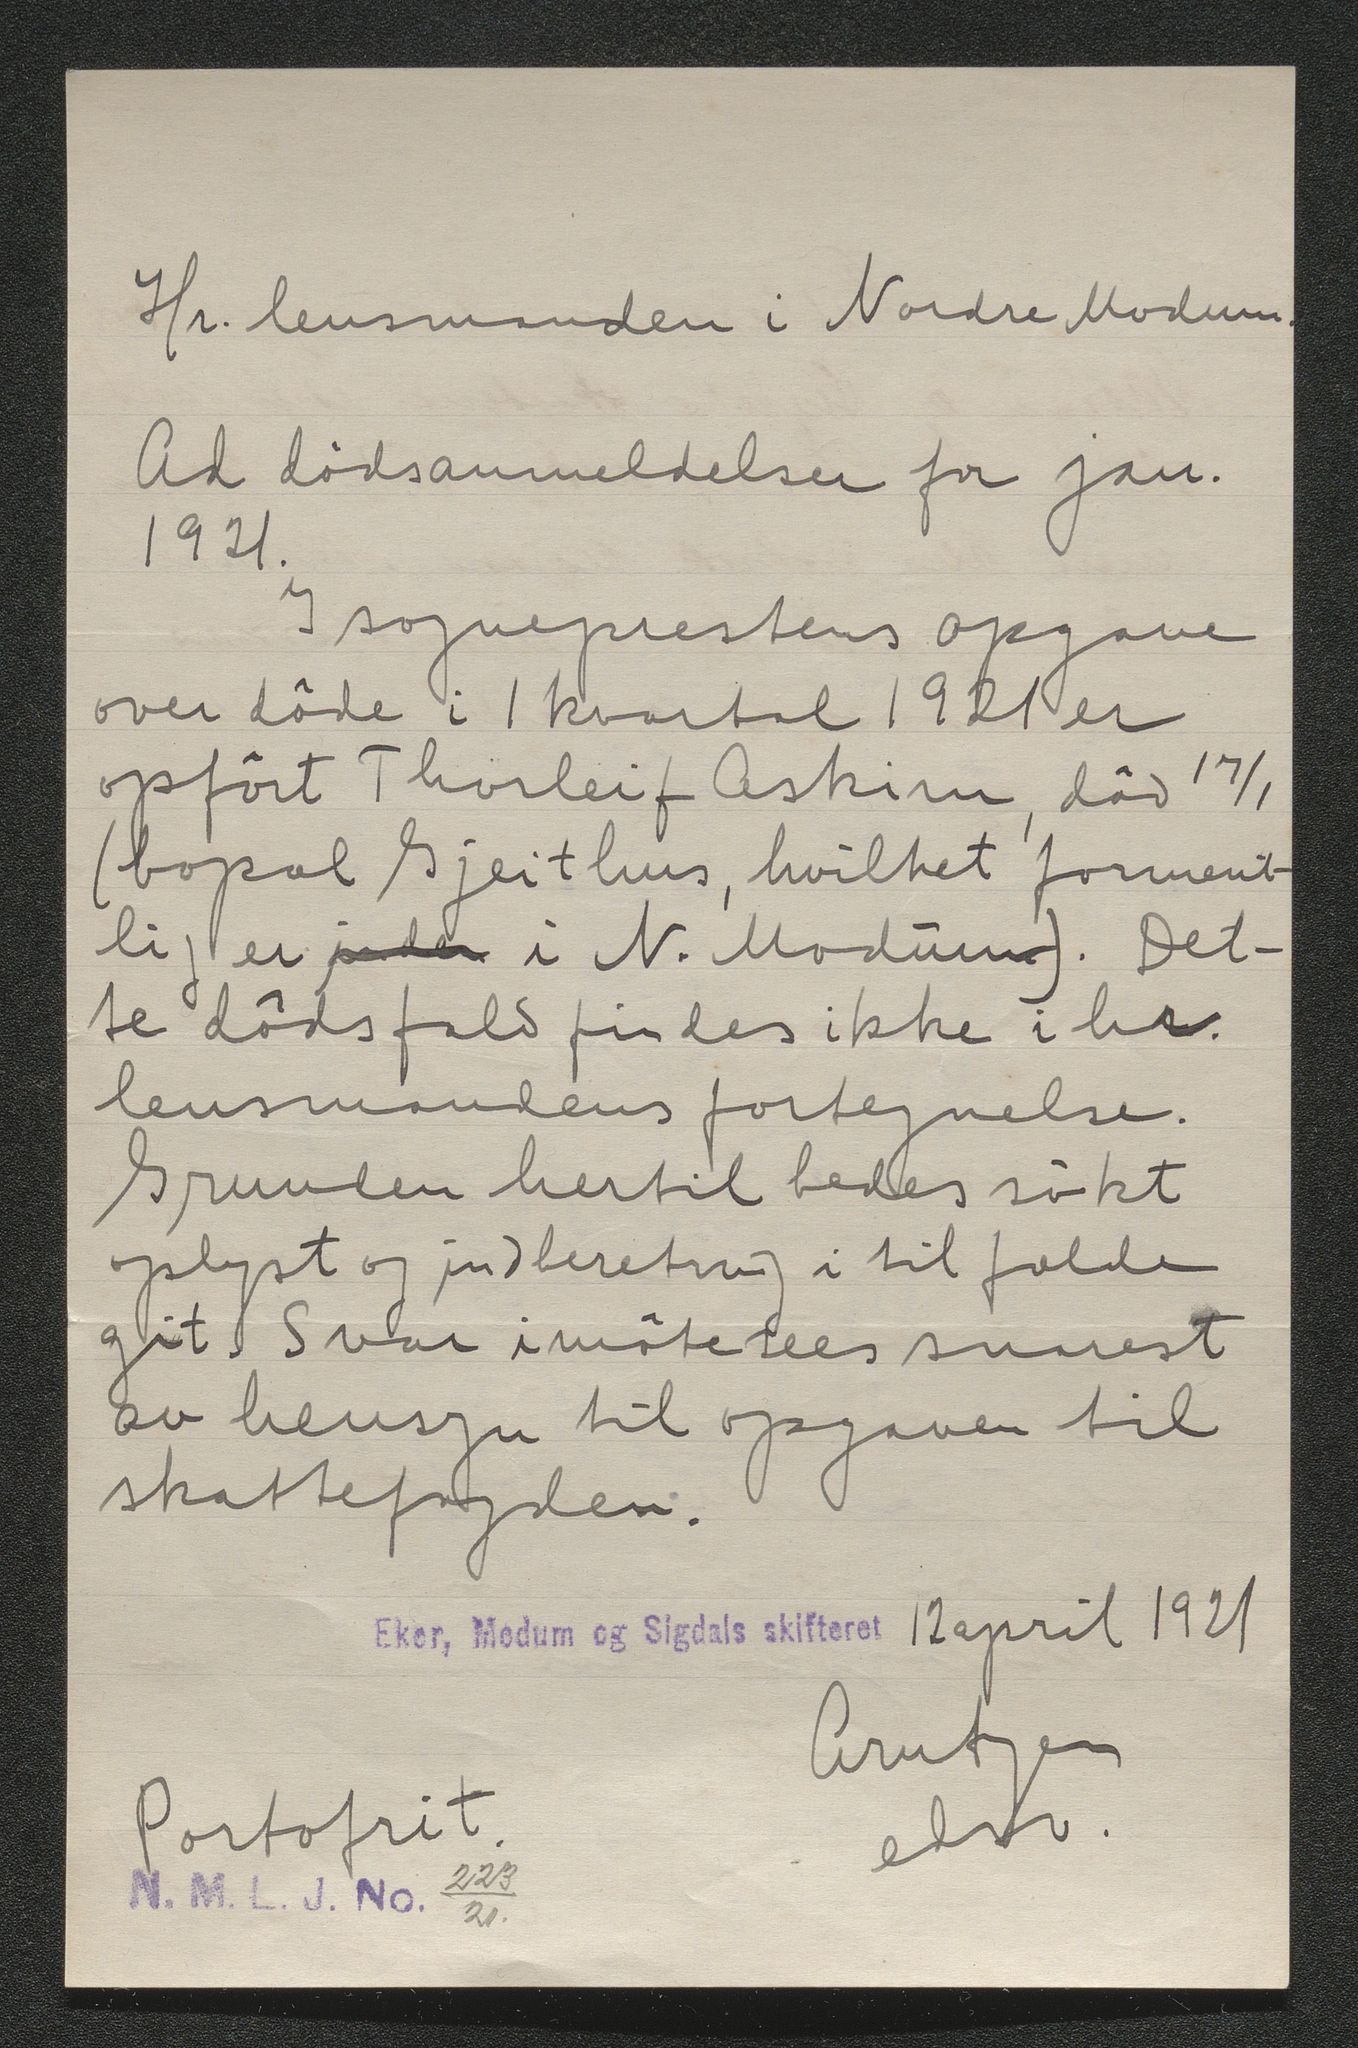 Hr. lensmanden i Nordre Modum.
Ad dödsanmeldelser for jan.
1921.
I sogneprestens opgave
over döde i 1 kvartal 1921 er
opfört Thorleif Askim, död 17/1
(bopæl Gjeithus, hvilket forment-
lig er inden i N. Modum). Det-
te dödsfald findes ikke i hr.
lensmandens fortegnelse.
Grunden hertil bedes sökt
oplyst og indberetning i tilfælde
git. Svar imötesees snarest
av hensyn til opgaven til
skattefogden.
Eker, Modum og Sigdals skifteret 12 april 1921
Arntzen
edsv.
Portofrit.
N. M. L. J. No. 223/21.